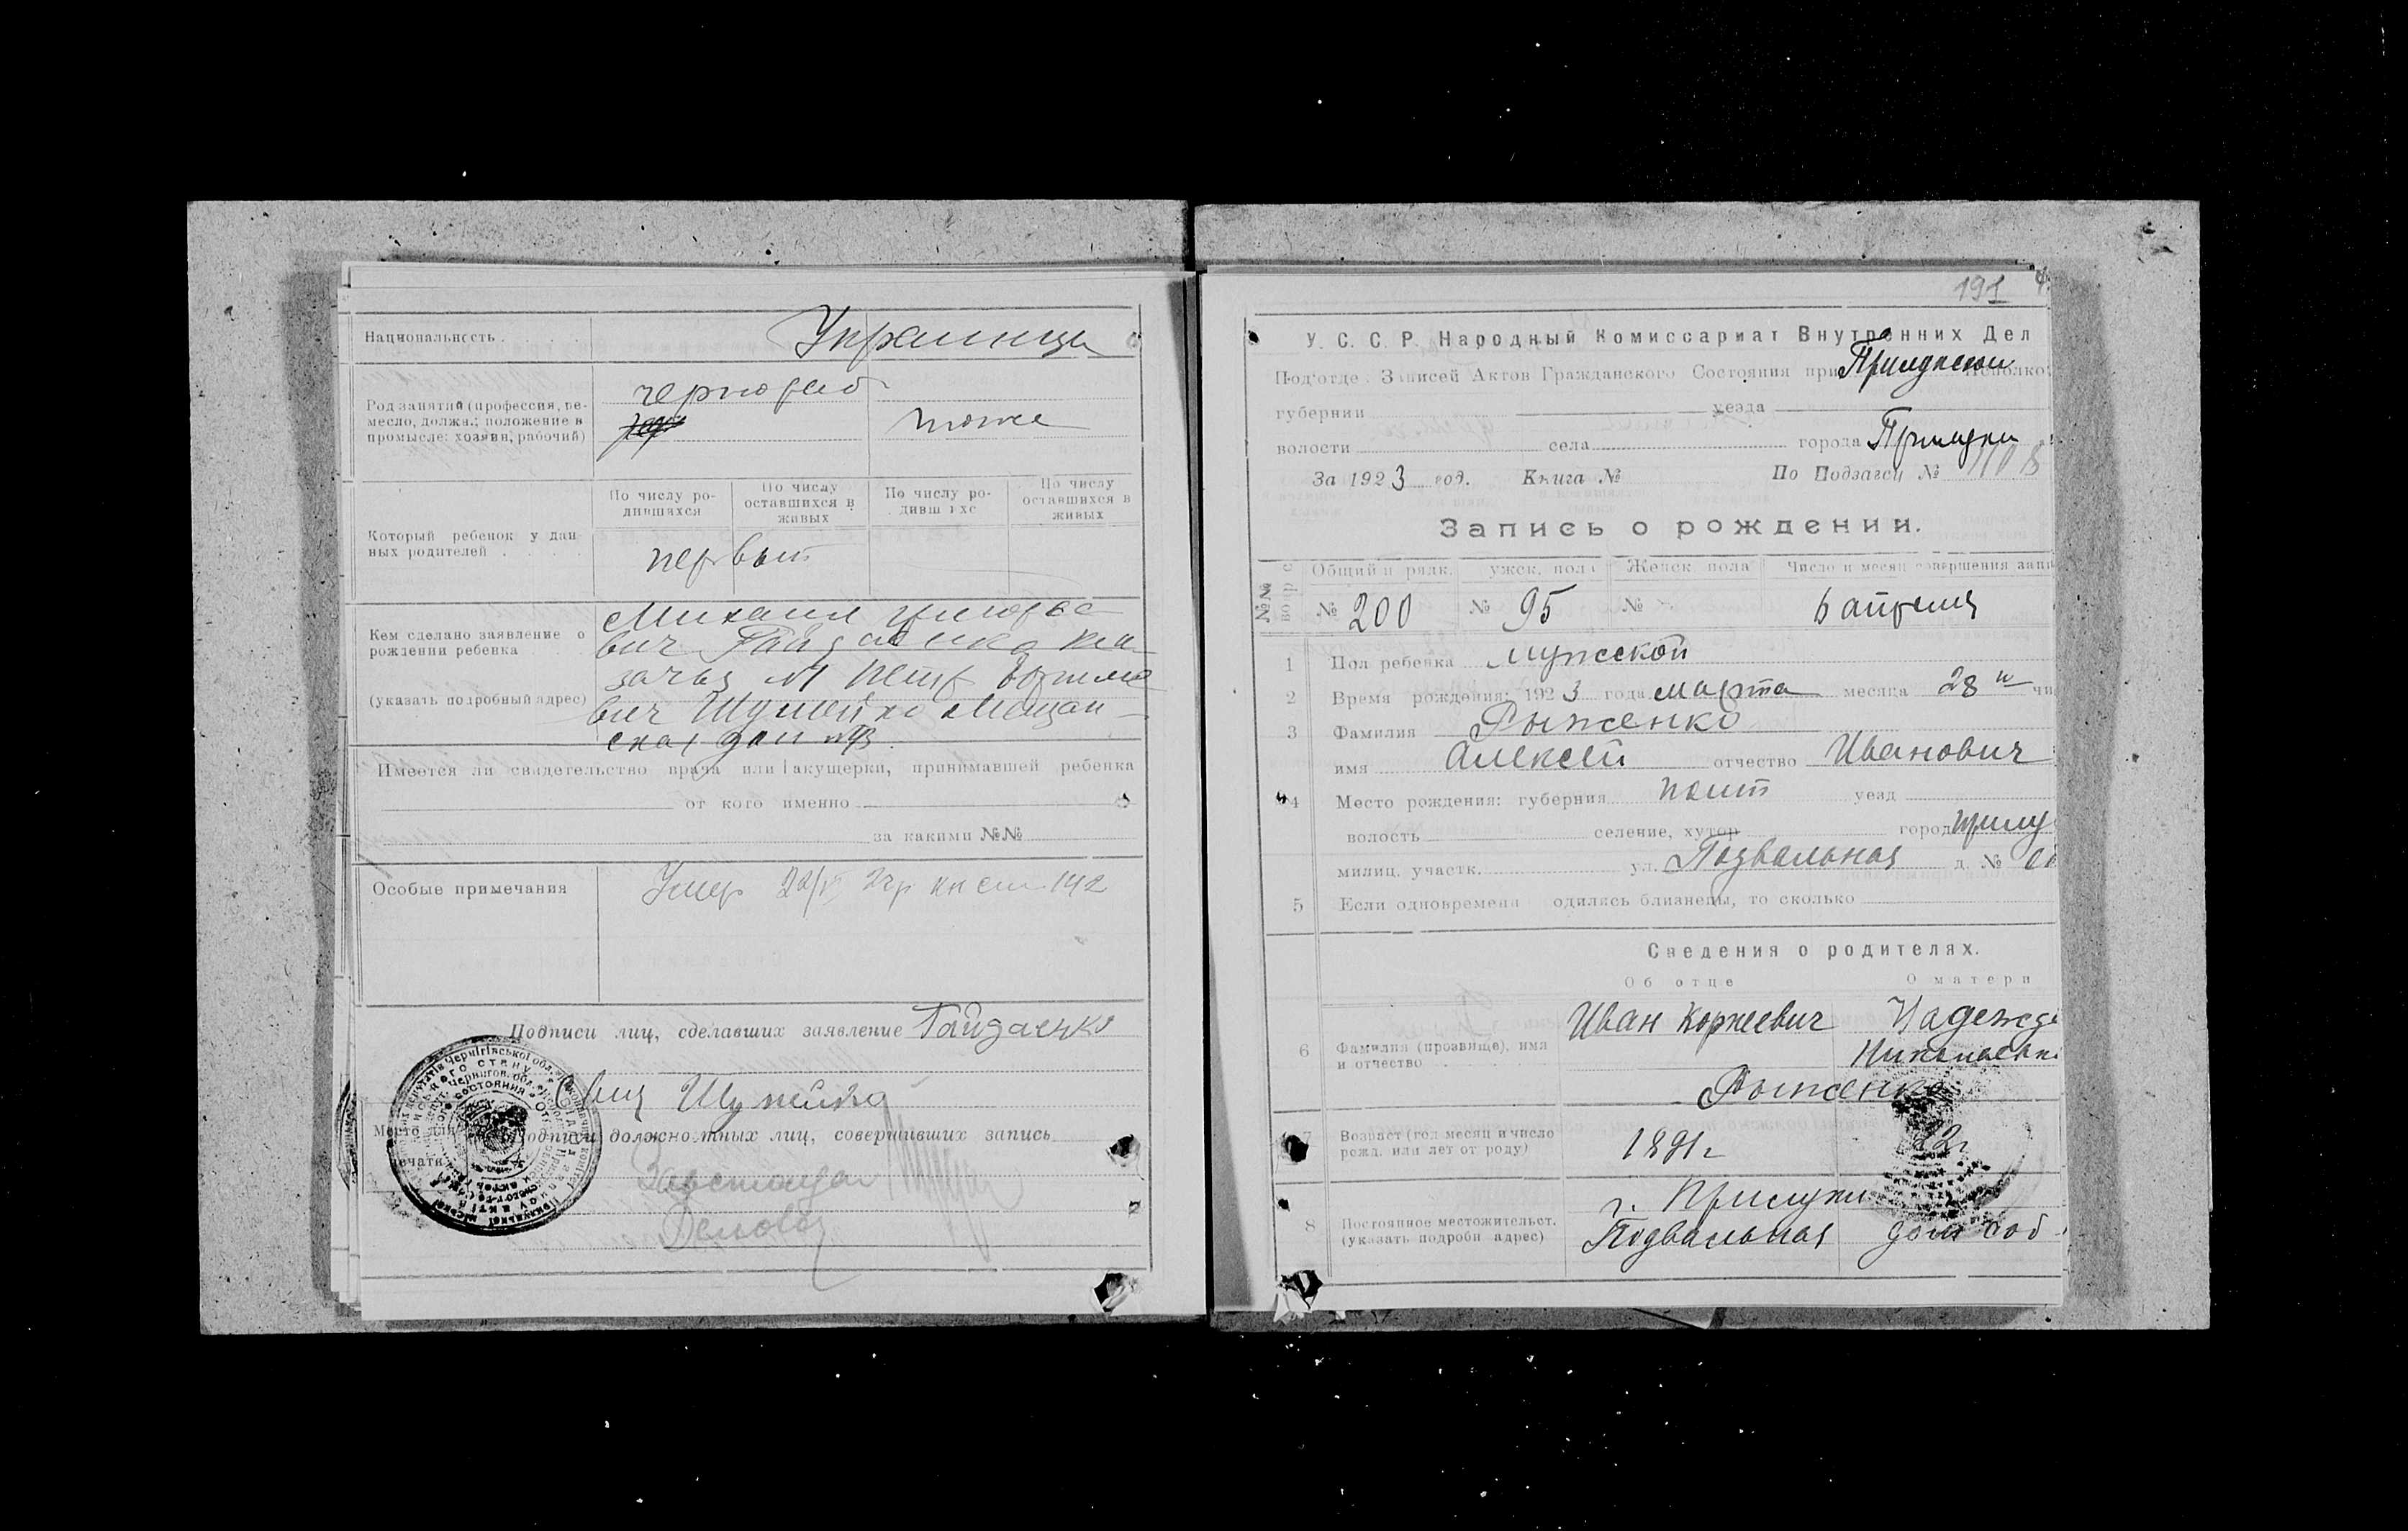 Национальность
Украинцы
Род занятий (профессия, ре-
месло, должн.; положение в
промысле: хозяин, рабочий)
чернораб
тоже
Который ребенок у дан-
ных родителей
По числу ро-
дившихся
По числу
оставшихся в
живых
По числу ро-
дивш хс
По числу
оставшихся в
живых
первый
Кем сделано заявление о
рождении ребенка
(указать подробный адрес)
Михаил Григорье
вич Гайдаенко Ка
зачья
вич Шумейко Мещан
ская дом
Имеется ли свидетельство врача или акушерки, принимавшей ребенка
от кого именно
за какими №№
Особые примечания
Умер
142
Подписи лиц, сделавших заявление Гайдаенко
Шумейко
Место для
печати
Подписи должностных лиц, совершивших запись
Завстолом
Деловод
191
У. С. С. Р. Народный Комиссариат Внутренних Дел
Подотде Записей Актов Гражданского Состояния при Прилукском Исполко
губернии уезда
волости села города Прилуки
За 1923 год. Книга № По Подзагсу №
Запись о рождении.
№№
Общий п рядк. ужск. пола Женск пола Число и месяц совершения запи
№ 200 № 95 № 6 апреля
1 Пол ребенка мужской
2 Время рождения: 1923 года марта месяца 28 чи
3 Фамилия Рыженко
имя Алексей отчество Иванович
4 Место рождения: губерния Полт уезд
волость селение, хутор город Прилу
милиц. участк. ул. Подвальная д. №
5 Если одновремени одились близнецы, то сколько
Сведения о родителях.
Об отце О матери
6 Фамилия (прозвище), имя
и отчество
Иван Корнеевич Надежда
Николаевн
Рыженко
7 Возраст (год месяц и число
рожд. или лет от роду)
1891г 22г
8 Постоянное местожительст.
(указать подробн адрес)
г. Прилуки
Подвальная дом соб